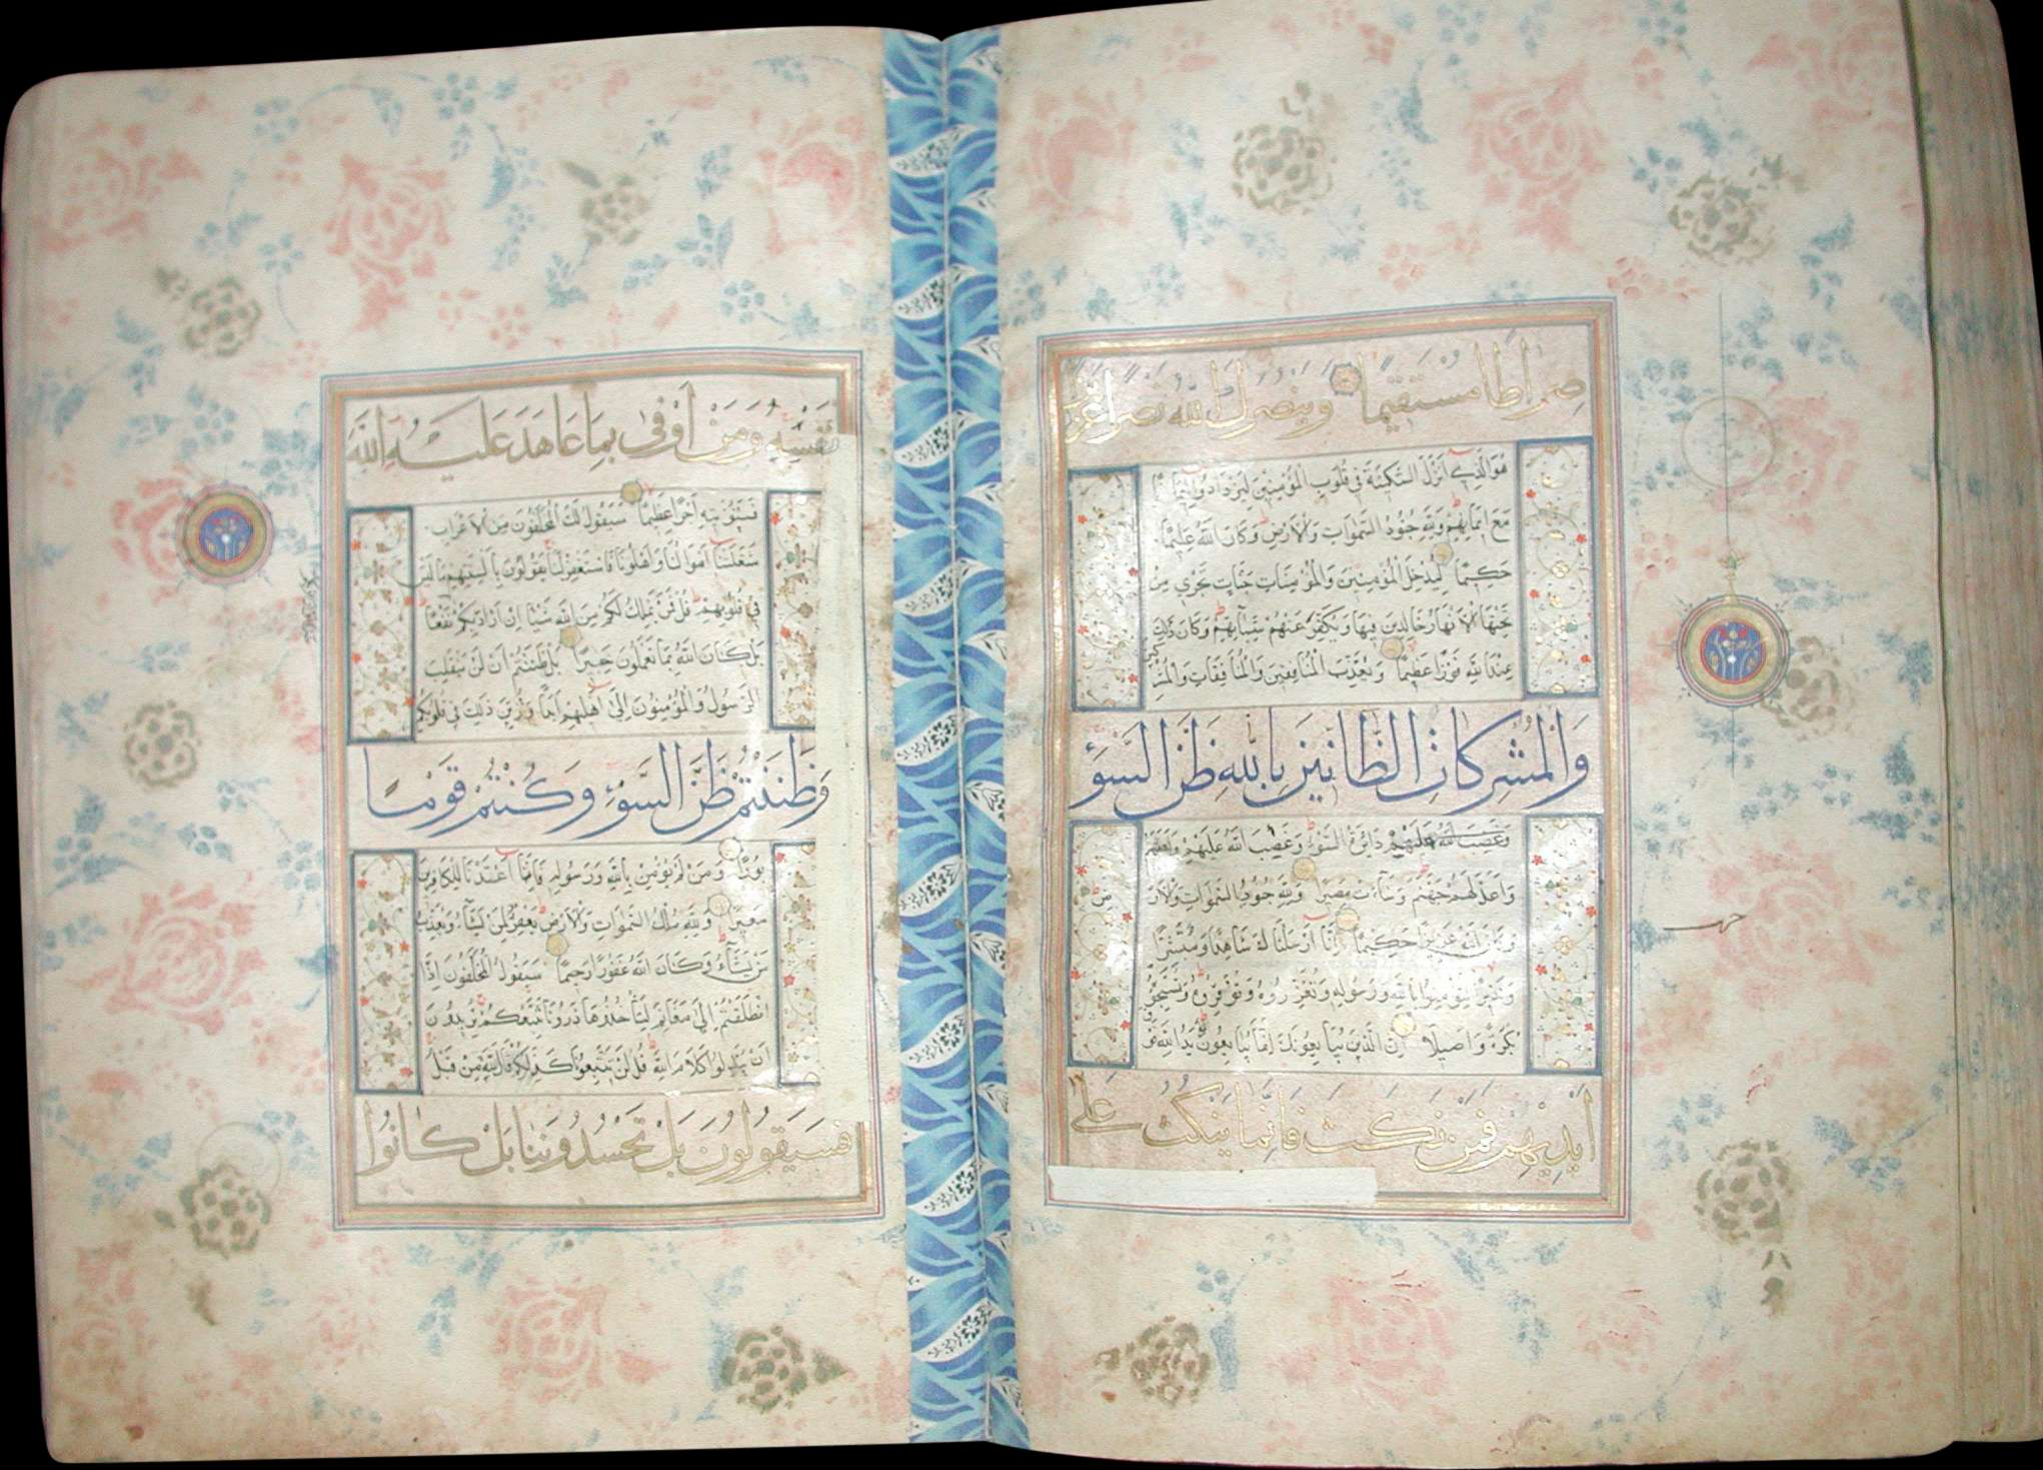 صراطا مستقيما وينصرك الله نصرا عزيزا
هو الذي انزل السكينة في قلوب المؤمنين ليزدادوا ايمانا
مع ايمانهم ولله جنود السموات والارض وكان الله عليما
حكيما ليدخل المؤمنين والمؤمنات جنات تجري من
تحتها الانهار خالدين فيها ويكفر عنهم سيآتهم وكان ذلك
عند الله فوزا عظيما ويعذب المنافقين والمنافقات والمشركين
والمشركات الظانين بالله ظن السوء
عليهم دائرة السوء وغضب الله عليهم ولعنهم
واعد لهم جهنم وساءت مصيرا ولله جنود السموات والارض
وكان الله عزيزا حكيما انا ارسلناك شاهدا ومبشرا
ونذيرا لتؤمنوا بالله ورسوله وتعزروه وتوقروه وتسبحوه
بكرة واصيلا ان الذين يبايعونك انما يبايعون الله يد الله فوق
ايديهم فمن نكث فانما ينكث على
نفسه ومن اوفى بما عاهد عليه الله
فسنؤتيه اجرا عظيما سيقول لك المخلفون من الاعراب
شغلتنا اموالنا واهلونا فاستغفر لنا يقولون بالسنتهم ما ليس
في قلوبهم قل فمن يملك لكم من الله شيئا ان اراد بكم نفعا
بل كان الله بما تعملون خبيرا بل ظننتم ان لن ينقلب
الرسول والمؤمنون الى اهليهم ابدا وزين ذلك في قلوبكم
وظننتم ظن السوء وكنتم قوما
بورا ومن لم يؤمن بالله ورسوله فانا اعتدنا للكافرين
سعيرا ولله ملك السموات والارض يغفر لمن يشاء ويعذب
من يشاء وكان الله غفورا رحيما سيقول المخلفون اذا
انطلقتم الى مغانم لتأخذوها ذرونا نتبعكم يريدون
ان يبدلوا كلام الله قل لن تتبعونا كذلكم قال الله من قبل
فسيقولون بل تحسدوننا بل كانوا